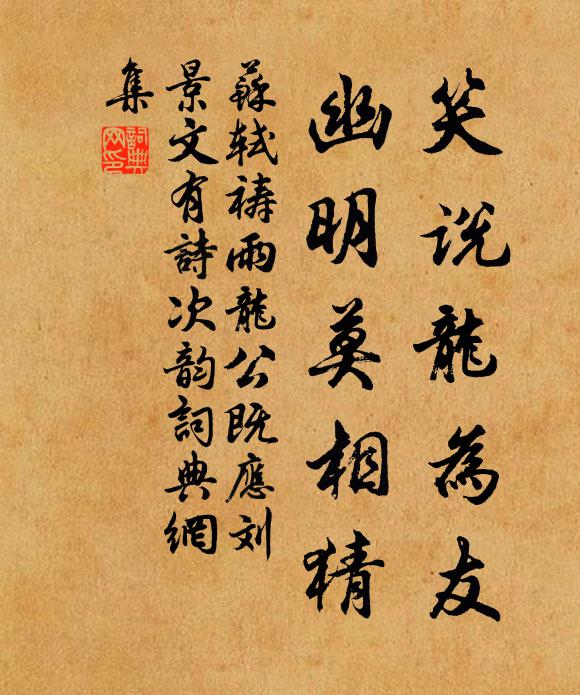 笑说龍為友
幽明莫相猜
蘇轼祷雨龍公既應刘
景文有詩次韵詞典網
集
詞典网印